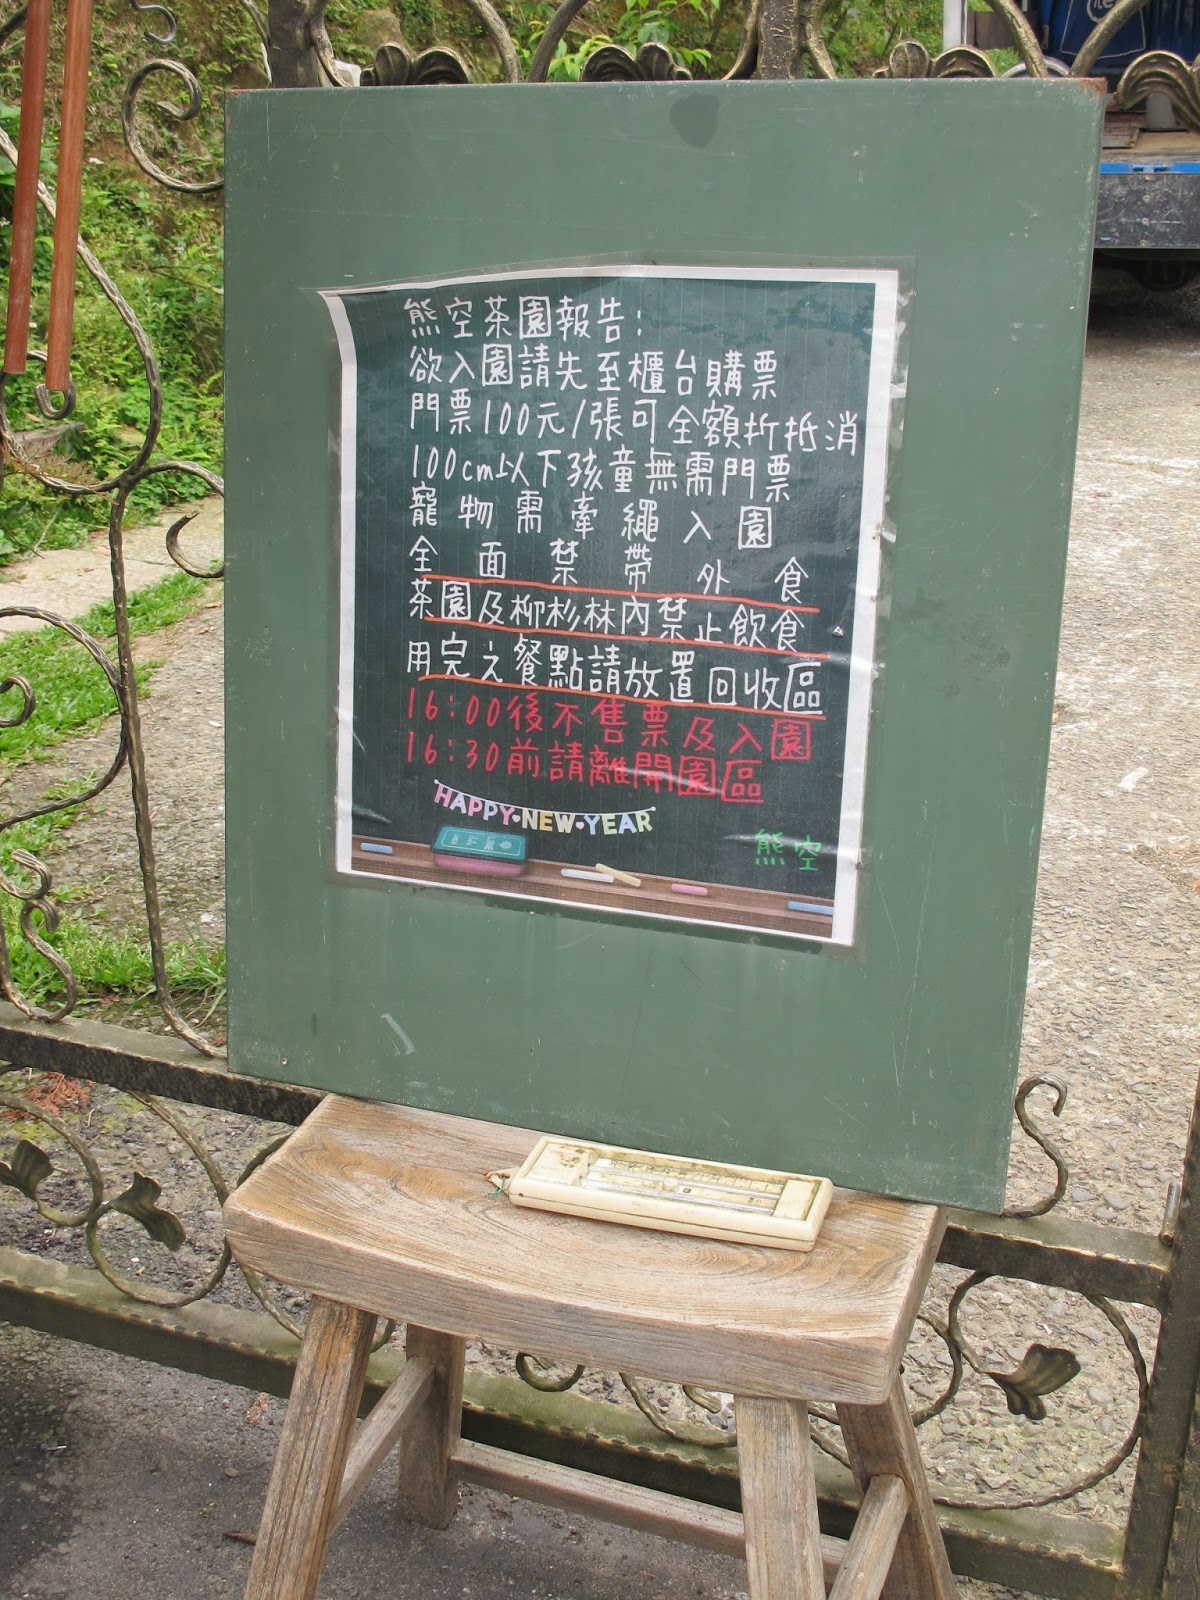 熊空茶園報告:
欲入園請先至櫃台購票
門票100元/張可全額折抵消
100cm以下孩童無需門票
寵物需牽繩入園
全面禁帶外食
茶園及柳杉林內禁止飲食
用完之餐點請放置回收區
16:00後不售票及入園
16:30前請離開園區
HAPPY NEW YEAR
熊空